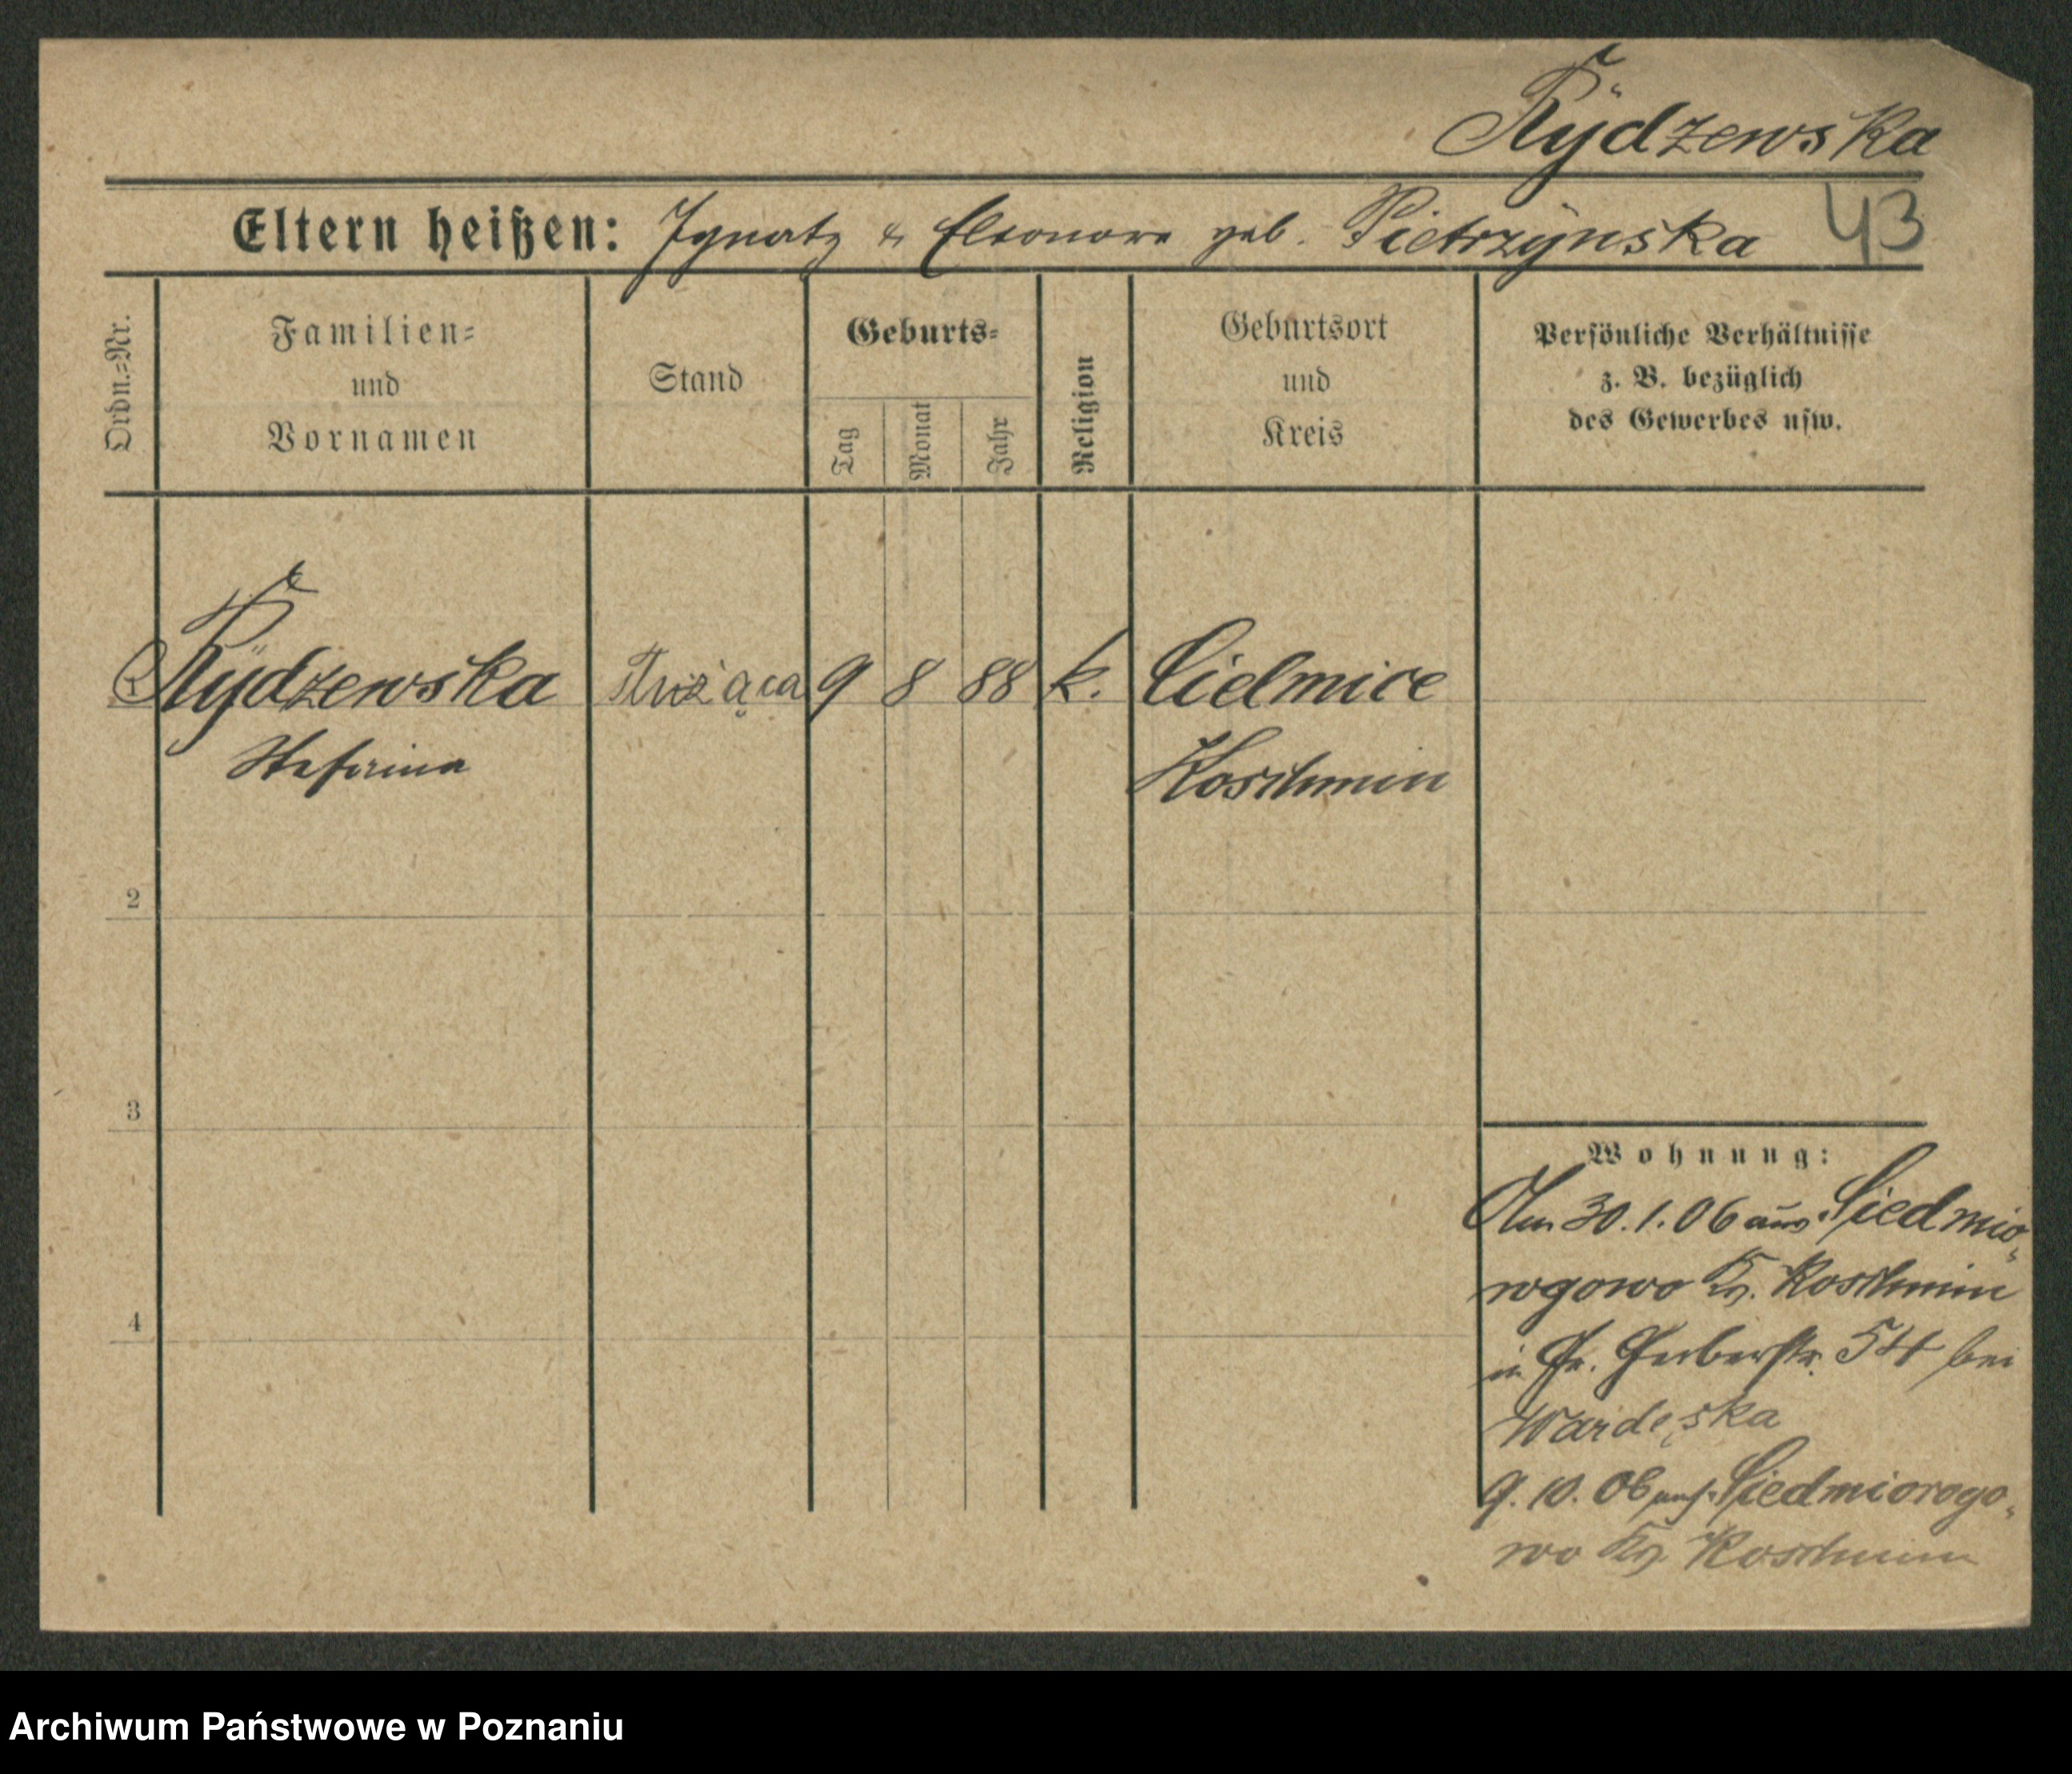 Rÿdzewska
Eltern heißen: Ignatz & Eleonore geb. Pietrzÿnska 43
Ordn.-Nr.
Familien-
und
Vornamen
Stand
Geburts-
Tag
Monat
Jahr
Religion
Geburtsort
und
Kreis
Persönliche Verhältnisse
z. B. bezüglich
des Gewerbes usw.
1 Rÿdzewska służąca 9 8 88 k. Cielmice
Koschmin
2
3
4
Wohnung:
Am 30.1.06 aus Siedmio-
rogowo Kr. Koschmin
in Gr. Gerberstr. 54 bei
Wardęska
9. 10. 06 auf Siedmiorogo-
wo Kr. Koschmin
Archiwum Państwowe w Poznaniu